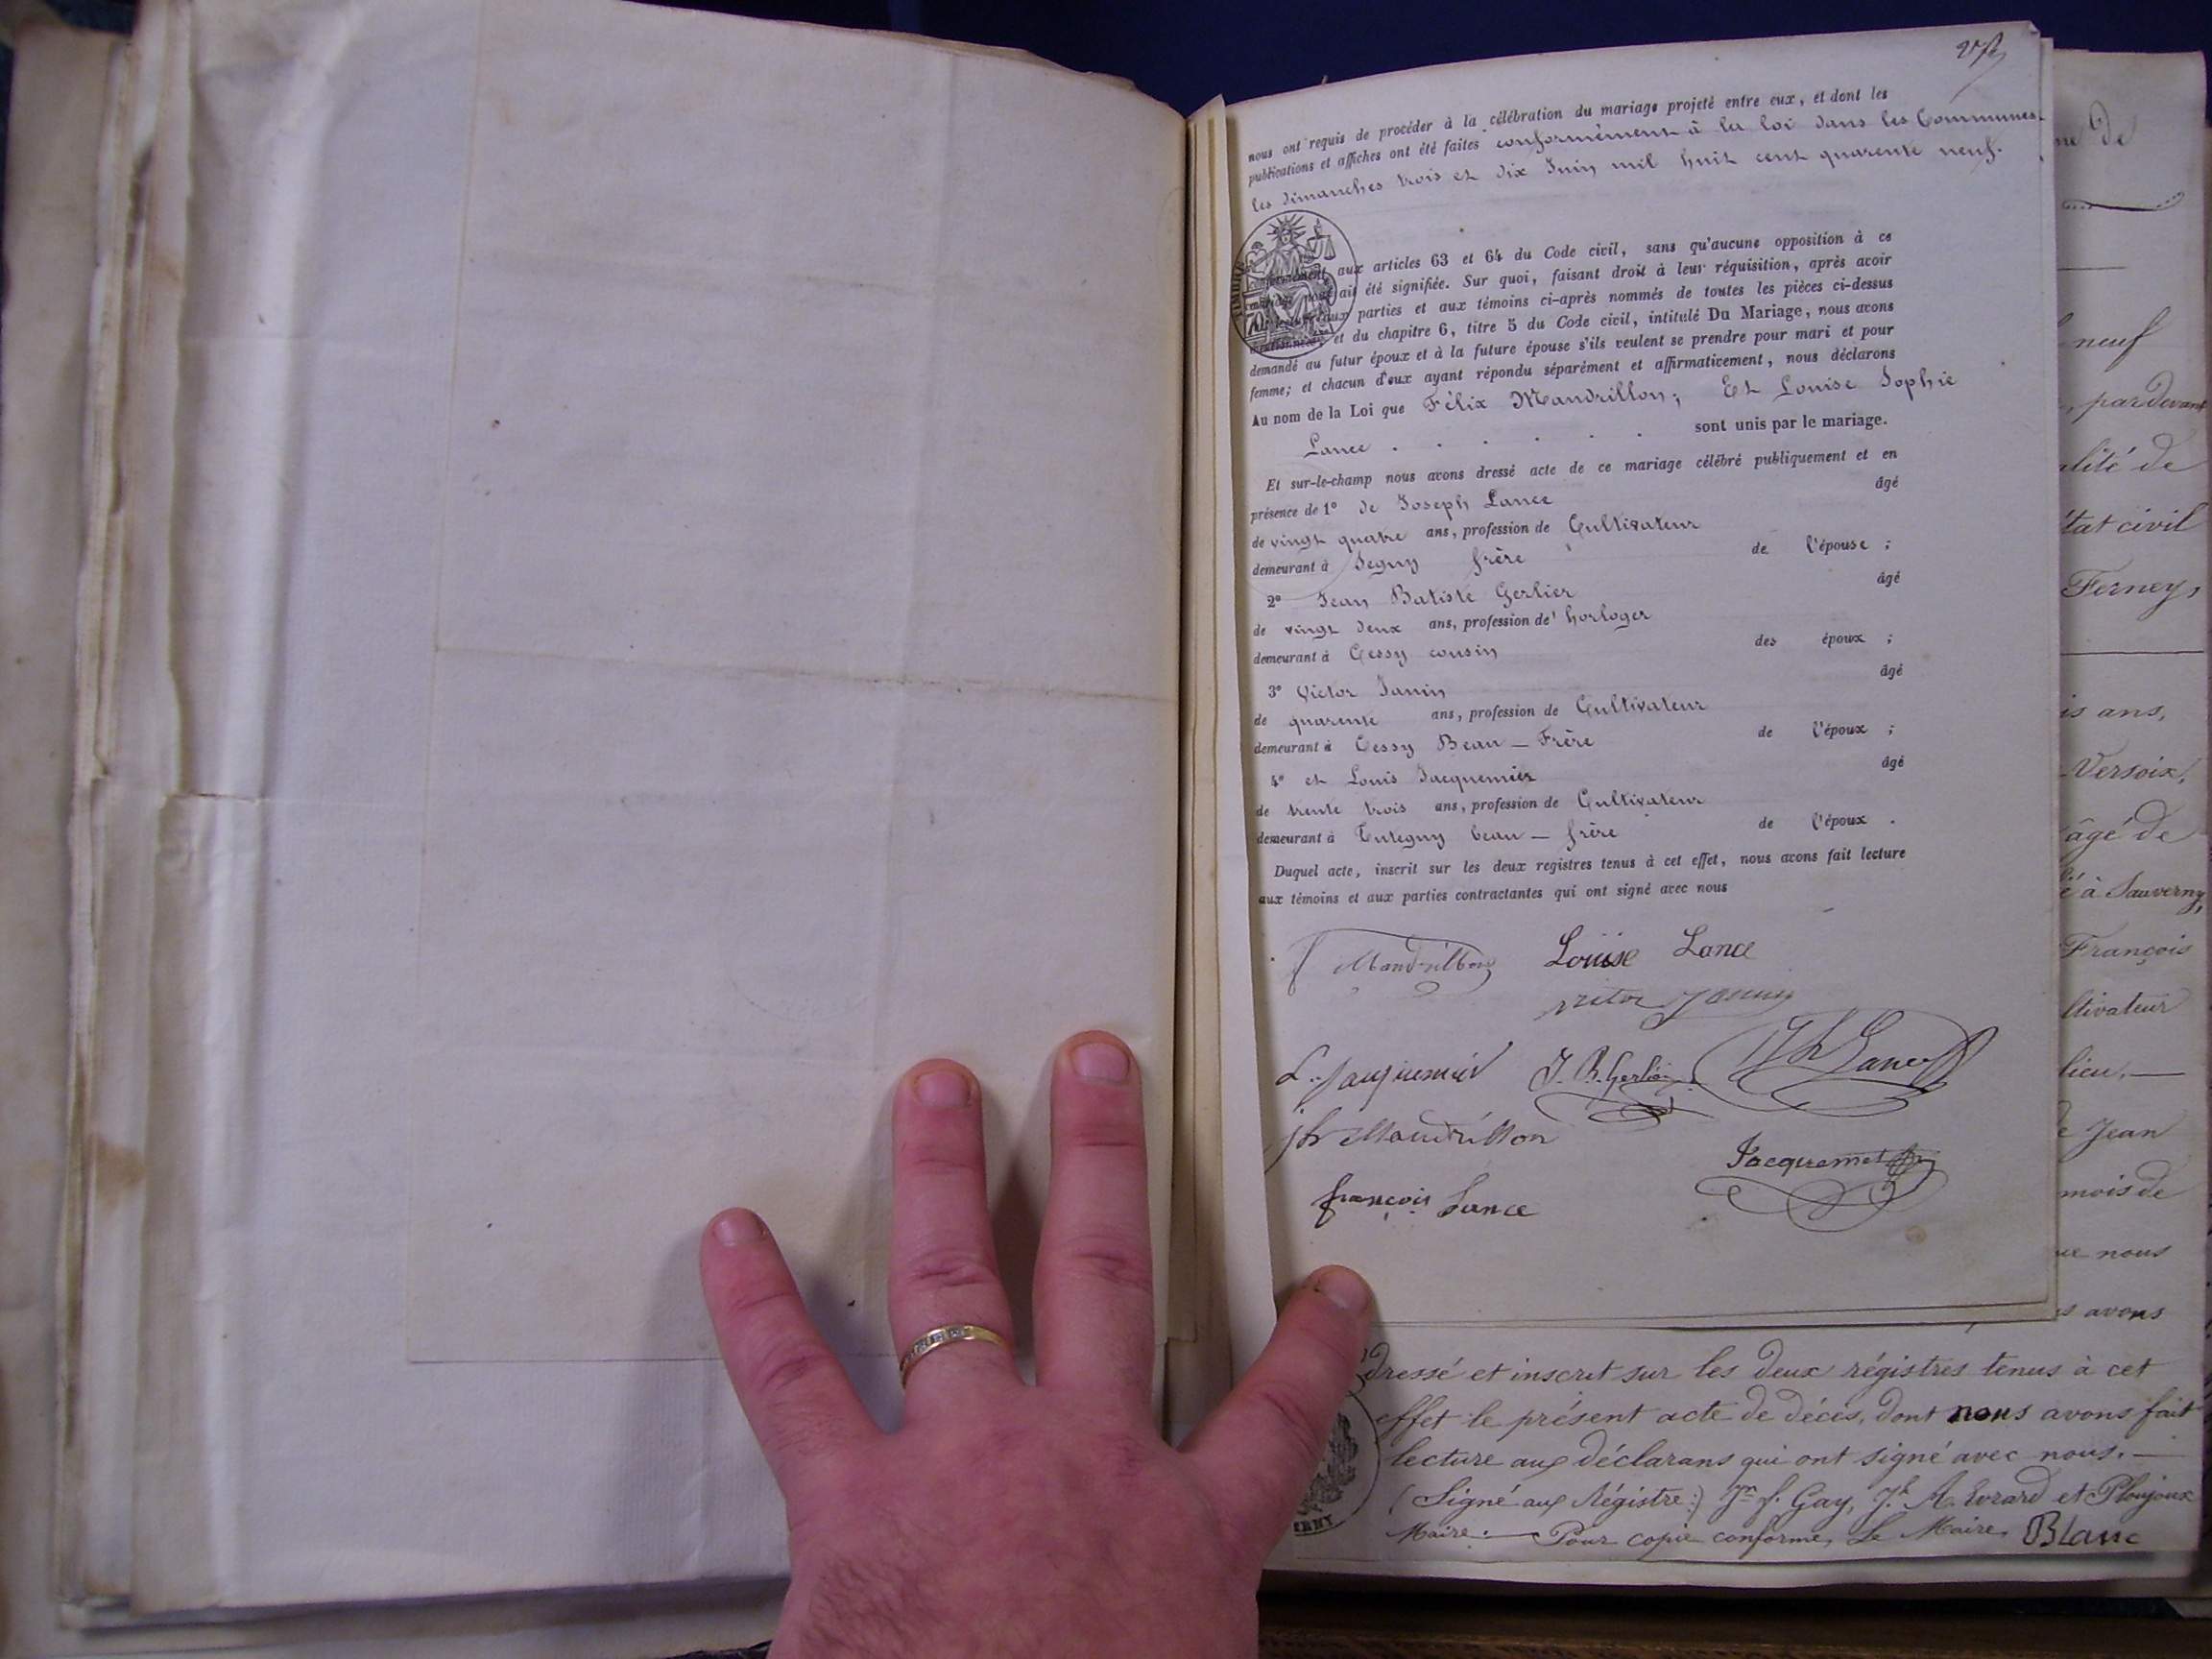 nous ont requis de procéder à la célébration du mariage projeté entre eux, et dont les
publications et affiches ont été faites conformément à la loi dans les Communes
les dimanches trois et dix Juin mil huit cent quarente neuf.
TIMBRE
aux articles 63 et 64 du Code civil, sans qu'aucune opposition à ce
ait été signifiée. Sur quoi, faisant droit à leur réquisition, après avoir
aux parties et aux témoins ci-après nommés de toutes les pièces ci-dessus
et du chapitre 6, titre 5 du Code civil, intitulé Du Mariage, nous avons
demandé au futur époux et à la future épouse s'ils veulent se prendre pour mari et pour
femme; et chacun d'eux ayant répondu séparément et affirmativement, nous déclarons
Au nom de la Loi que Félix Mandrillon; Et Louise Sophie
Lance . . . . . . sont unis par le mariage.
Et sur-le-champ nous avons dressé acte de ce mariage célébré publiquement et en
présence de 1° de Joseph Lance âgé
de vingt quatre ans, profession de Cultivateur
demeurant à Segny frère de l'épouse ;
2° Jean Batiste Gerlier âgé
de vingt deux ans, profession d' horloger
demeurant à Cessy cousin des époux ;
3° Victor Janin âgé
de quarente ans, profession de Cultivateur
demeurant à Cessy Beau-Frère de l'époux ;
4° et Louis Jacquemier âgé
de trente trois ans, profession de Cultivateur
demeurant à Tutegny beau-frère de l'époux .
Duquel acte, inscrit sur les deux registres tenus à cet effet, nous avons fait lecture
aux témoins et aux parties contractantes qui ont signé avec nous
Mandrillon Louise Lance
victor Janin
L. Jacquemier J. B. Gerlier Jh Lance
jh Mandrillon
Jacquemet
françois Lance
ne De
neuf
, pardevant
alité de
état civil
Ferney,
is ans,
Versoix,
âgé de
é à Sauverny,
François
ltivateur
lieu,
e Jean
mois de
ue nous
s avons
dressé et inscrit sur les deux régistres tenus à cet
effet le présent acte de décès, dont nous avons fait
lecture aux déclarans qui ont signé avec nous.
(Signé aux Régistre:) Jn f. Gay, Jh A. Evrard et Ploujoux
Maire. Pour copie conforme, Le Maire, Blanc